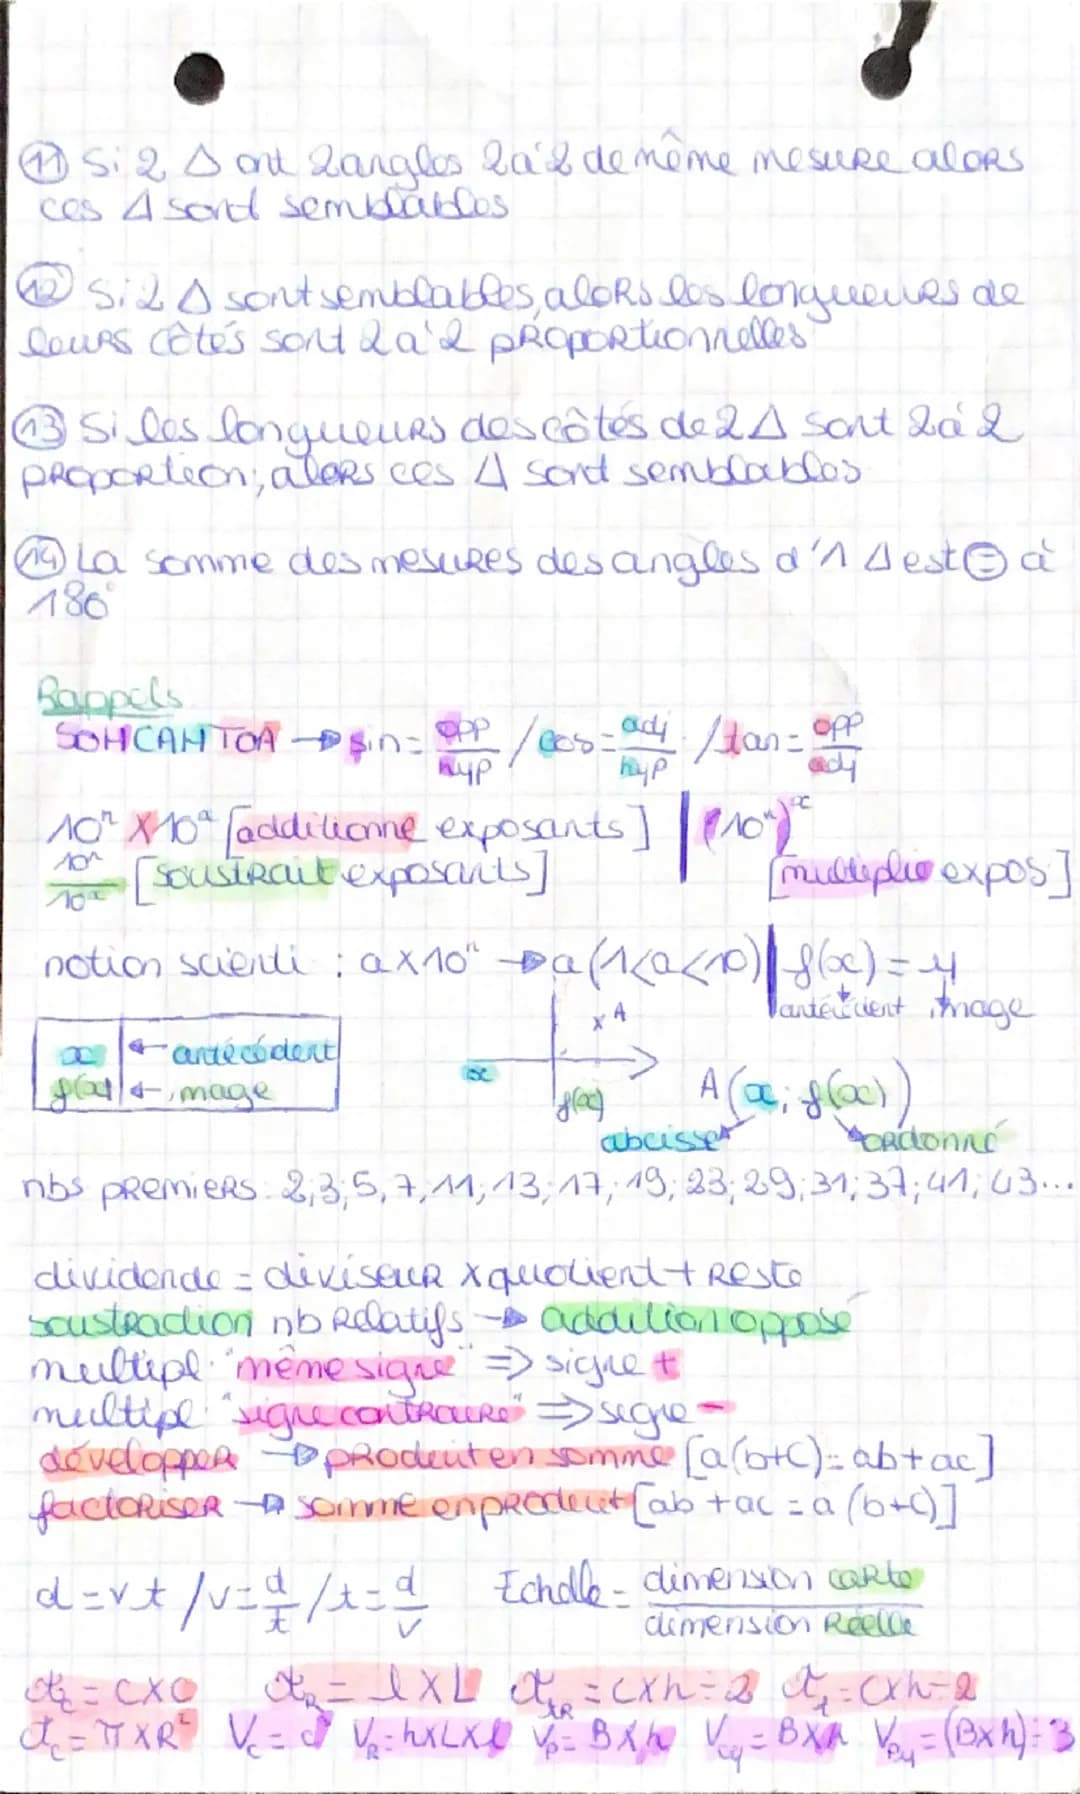 ⑪ Si 2 Δ ont 2 angles 2 à 2 de même mesure alors
ces Δ sont semblables
⑫ Si 2 Δ sont semblables, alors les longueurs de
leurs côtés sont 2 à 2 proportionnelles
⑬ Si les longueurs des côtés de 2 Δ sont 2 à 2
proportion; alors ces Δ sont semblables
⑭ La somme des mesures des angles d'1 Δ est = à
180°
Rappels
SOHCAHTOA → sin = opp/hyp / cos = adj/hyp / tan = opp/adj
10ⁿ × 10ᵃ [additionne exposants] | (10ⁿ)ˣ
10ⁿ/10ˣ [soustrait exposants] [multiplie expos]
notion scienti : a × 10ⁿ → a (1<a<10) | f(x) = y
antécédent image
x ← antécédent
f(x) ← image
x A
x
f(x)
A (x; f(x))
abcisse ordonné
nbs premiers : 2; 3; 5; 7; 11; 13; 17; 19; 23; 29; 31; 37; 41; 43...
dividende = diviseur × quotient + reste
soustraction nb relatifs → addition opposé
multipl. "même signe" ⇒ signe +
multipl "signe contraire" ⇒ signe -
développer → produit en somme [a(b+c) = ab + ac]
factoriser → somme en produit [ab + ac = a (b+c)]
d = vt / v = d/t / t = d/v Echelle = dimension carte/dimension réelle
𝒜c = c×c 𝒜R = l × L 𝒜tR = c×h÷2 𝒜t = c×h÷2
𝒜c = π × R² Vc = c³ VR = h×L×l Vp = B×h Vcy = B×h Vpy = (B×h)÷3